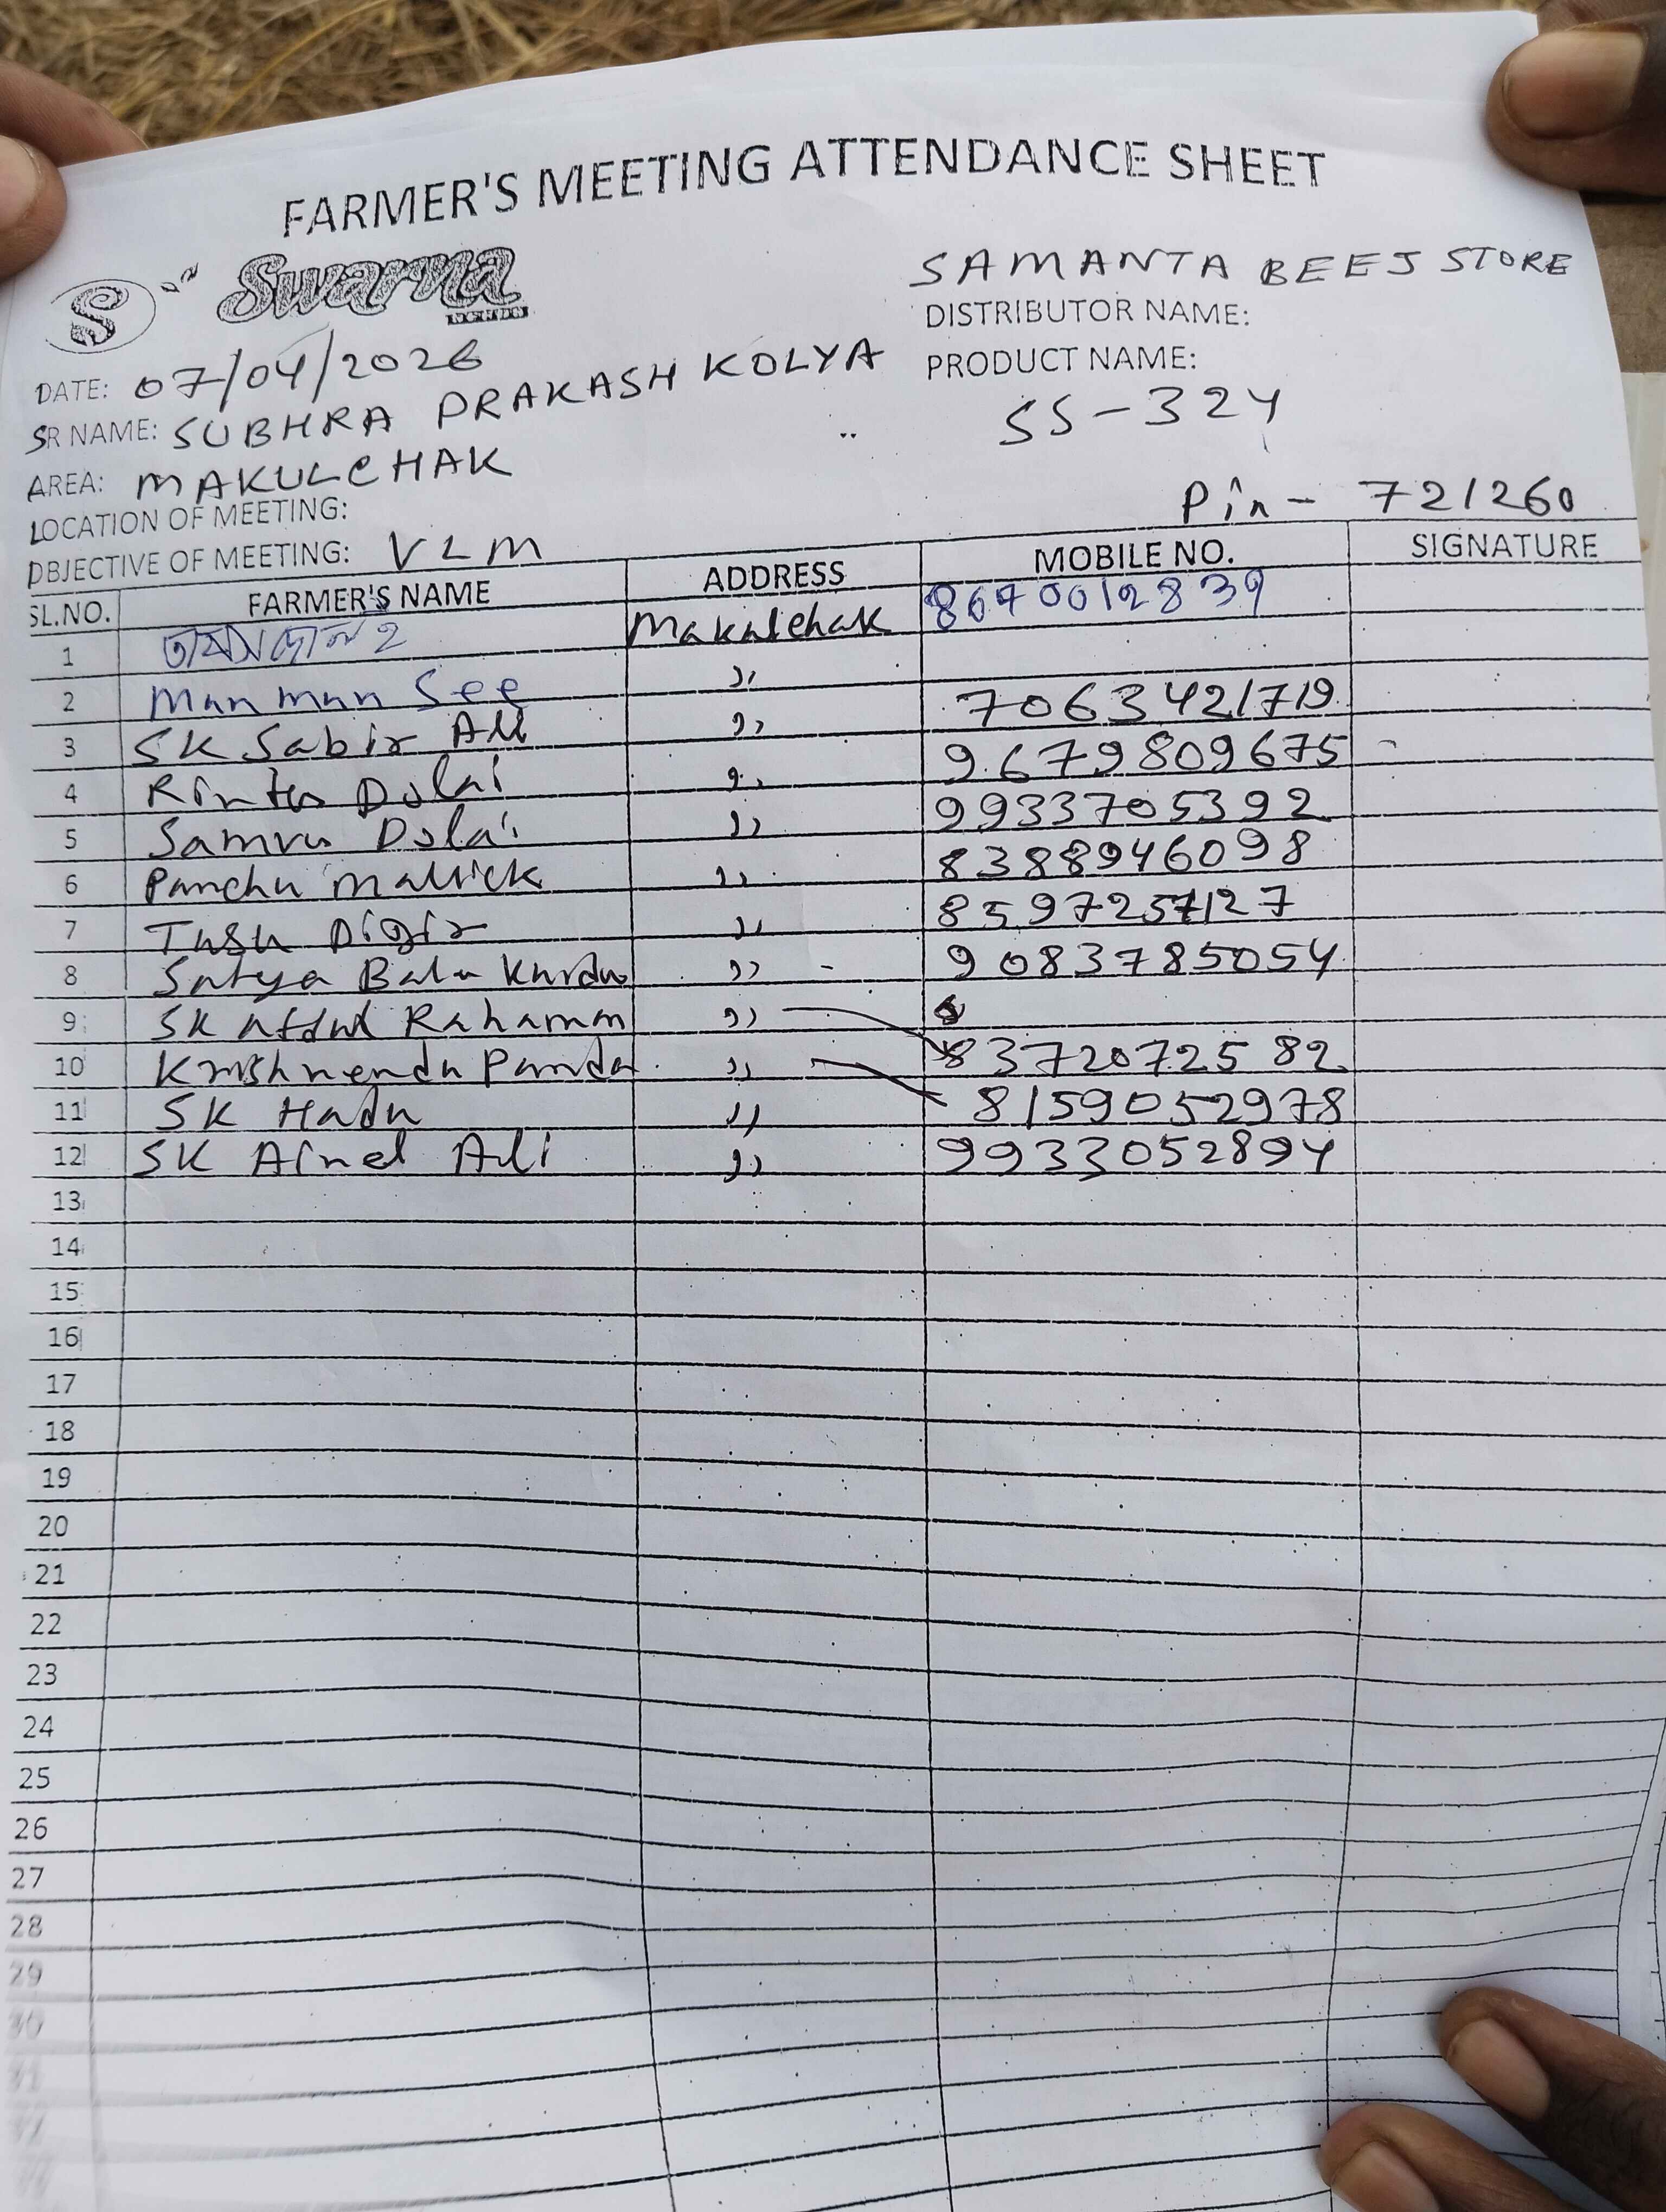 FARMER'S MEETING ATTENDANCE SHEET
S Swarna
SAMANTA BEEJ STORE
DISTRIBUTOR NAME:
DATE: 07/04/2026
PRODUCT NAME:
SR NAME: SUBHRA PRAKASH KOLYA
SS-324
AREA: MAKULCHAK
LOCATION OF MEETING:
Pin - 721260
OBJECTIVE OF MEETING: VLM
SL.NO. FARMER'S NAME ADDRESS MOBILE NO. SIGNATURE
1 Makulchak
2 Mun mun See ,,
3 SK Sabir Ali ,, 7063421719
4 Rintu Dolai ,, 9679809675
5 Samru Dolai ,, 9933705392
6 Panchu Mallick ,, 8388946098
7 Tusu Digir ,, 8597257127
8 Satya Bala Kundu ,, 9083785054
9 SK Rahaman ,,
10 Krishnendu Panda ,, 8372072582
11 SK Hadu ,, 8159052978
12 SK Ali ,, 9933052894
13
14
15
16
17
18
19
20
21
22
23
24
25
26
27
28
29
30
31